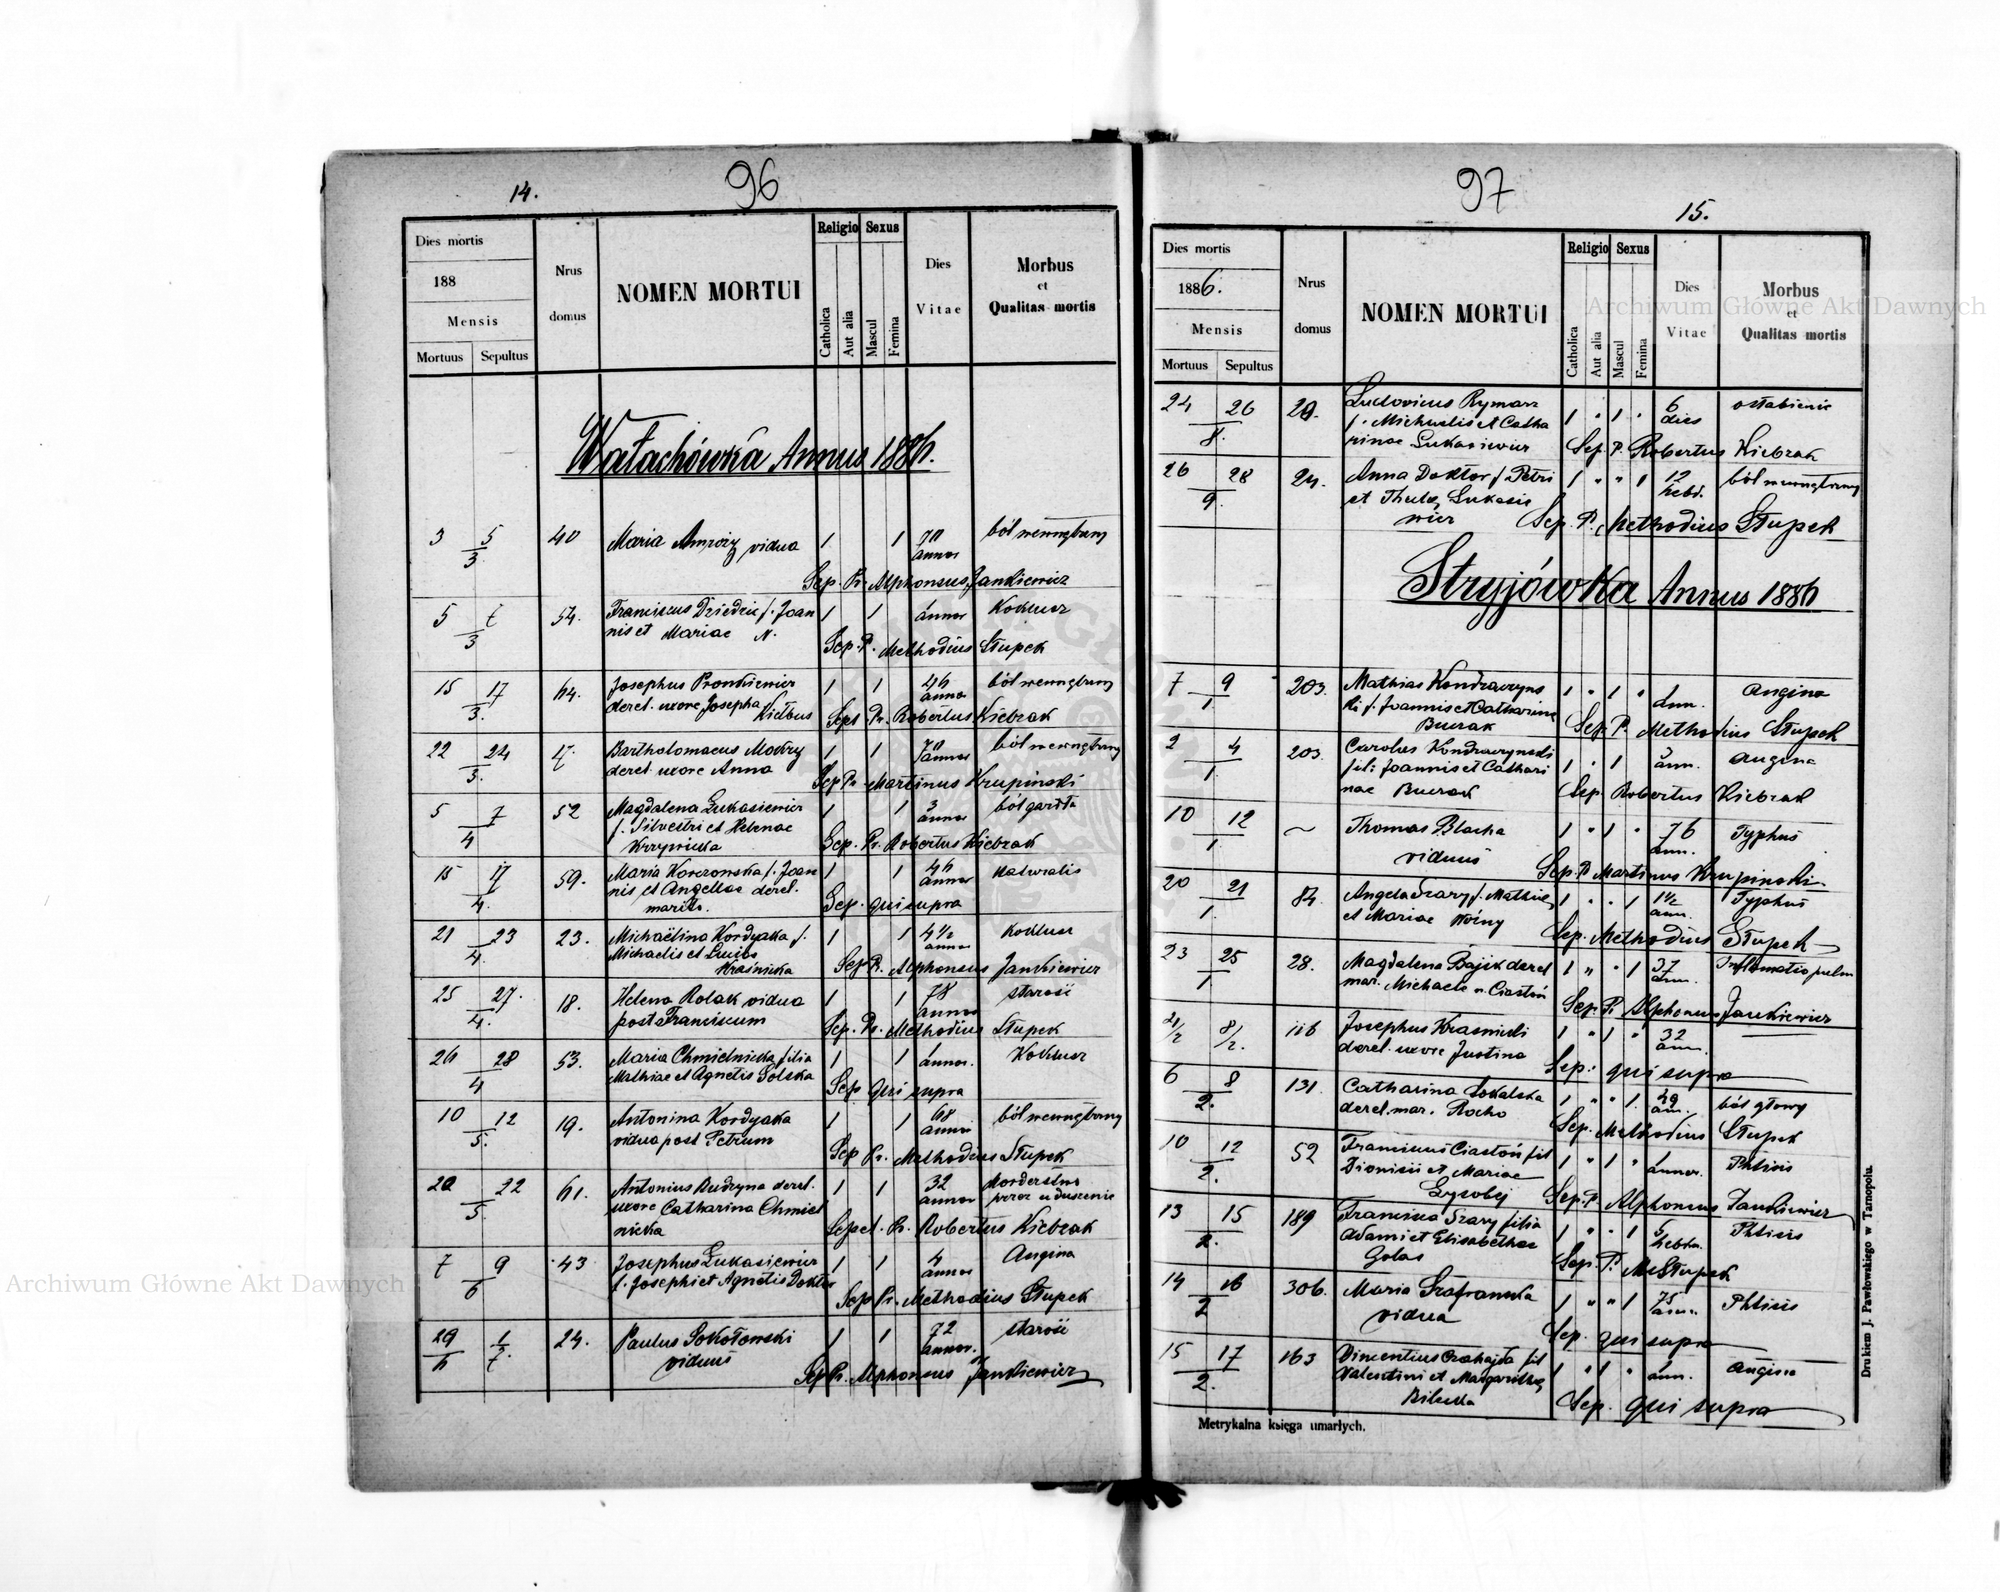 96
14.
Dies mortis
188
Mensis
Mortuus Sepultus
Nrus domus
NOMEN MORTUI
Religio
Catholica
Aut alia
Sexus
Mascul
Femina
Dies Vitae
Morbus et Qualitas mortis
Wałachówka Annus 1886.
3 5/3 40 Maria Amrozy vidua 1 1 70 ból wewnętrzny
annor
Sep. Pr. Alphonsus Jankiewicz
5 7/3 54. Franciscus Dziedzic f. Joan 1 1 1 annor Koklusz
nis et Mariae N.
Sep. P. Methodius Słupek
15 17/3. 64. Josephus Pronkiewicz 1 1 46 ból wewnętrzny
derel. uxore Josepha Kiełbus annor
Sept Pr. Robertus Kiebzak
22 24/3. 17. Bartholomaeus Mokrzy 1 1 70 ból wewnętrzny
derel. uxore Anna annor
Sep Pr. Martinus Krupinski
5 7/4 52 Magdalena Łukasiewicz 1 1 3 ból gardła
f. Silvestri et Helenae annor
Krzywicka
Sep. Pr. Robertus Kiebzak
15 17/4. 59. Maria Korczowska f. Joan 1 1 46 naturalis
nis et Angellae derel. annor
marito.
Sep. qui supra
21 23/4. 23. Michaëlina Kordyaka f. 1 1 4 1/2 Koklusz
Michaelis et Luiba annor
Kraśnicka
Sep. P. Alphonsus Jankiewicz
25 27./4. 18. Helena Rolak vidua 1 1 78 starość
post Franciscum annor
Sep. Pr. Methodius Słupek
26 28/4 53. Maria Chmielnicka filia 1 1 1 annor. Koklusz
Mathiae et Agnetis Golska
Sep qui supra
10 12/5. 19. Antonina Kordyaka 1 1 68 ból wewnętrzny
vidua post Petrum annor
Sep Pr. Methodius Słupek
20 22/5. 61. Antonius Budzyna derel. 1 1 32 Morderstwo
uxore Catharina Chmiel annor przez uduszenie
nicka
Sepel. Pr. Robertus Kiebzak
7 9/6 43 Josephus Łukasiewicz 1 1 4 Angina
f. Josephi et Agnetis Doktor annor
Sep Pr. Methodius Słupek
29/6 1/7. 24. Paulus Sokołowski 1 1 72 starość
viduus annor.
Sep Pr. Alphonsus Jankiewicz
97
15.
Dies mortis
1886.
Mensis
Mortuus Sepultus
Nrus domus
NOMEN MORTUI
Religio
Catholica
Aut alia
Sexus
Mascul
Femina
Dies Vitae
Morbus et Qualitas mortis
24 26/8. 29. Ludovicus Rymarz 1 " 1 " 6 osłabienie
f. Michaelis et Catha dies
rinae Łukasiewicz
Sep. P. Robertus Kiebzak
26 28/9. 24. Anna Doktor f. Petri 1 " " 1 12 ból wewnętrzny
et Theclę Łukasie hebd.
wicz
Sep. P. Methodius Słupek
Stryjówka Annus 1886
7 9/1. 203. Mathias Kondraczyns 1 " 1 " 1 Angina
ki f. Joannis et Catharina ann.
Buczak
Sep. P. Methodius Słupek
2 4/1. 203. Carolus Kondraczynski 1 " 1 3 angina
fil: Joannis et Cathari ann.
nae Buczak
Sep. Robertus Kiebzak
10 12/1. ~ Thomas Blacha 1 " 1 " 76 Typhus
viduus ann.
Sep. P Martinus Krupinski
20 21/1. 84. Angela Szary f. Mathiae 1 " " 1 1 1/2 Typhus
et Mariae Woźny ann.
Sep. Methodius Słupek
23 25/1 28. Magdalena Bajik derel 1 " " 1 37 Inflamatio pulm
mar. Michaele n. Ciastoń ann.
Sep. P. Alphonsus Jankiewicz
8/2. 116 Josephus Krasnicki 1 " 1 " 32
derel. uxore Justina ann.
Sep: qui supra
6 8/2. 131. Catharina Sokalska 1 " " 1. 49 ból głowy
derel. mar. Rocho ann.
Sep. Methodius Słupek
10 12/2. 52 Franciscus Ciastoń fil 1 " 1 " 1 Phtisis
Dionisii et Mariae annor.
Łysobej
Sep. P. Alphonsus Jankiewicz
13 15/2. 189 Francisca Szary filia 1 " " 1 5 Phtisis
Adami et Elisabethae hebdo.
Golas
Sep. P. M. Słupek
14 16/2 306. Maria Szafranska 1 " " 1 75 Phtisis
vidua ann.
Sep. qui supra
15 17/2. 163 Vincentius Czahajda fil 1 " 1 " 1 angina
Valentini et Margarithę ann.
Bilecka
Sep. qui supra
Metrykalna księga umarłych.
Drukiem J. Pawłowskiego w Tarnopolu.
Archiwum Główne Akt Dawnych
Archiwum Główne Akt Dawnych